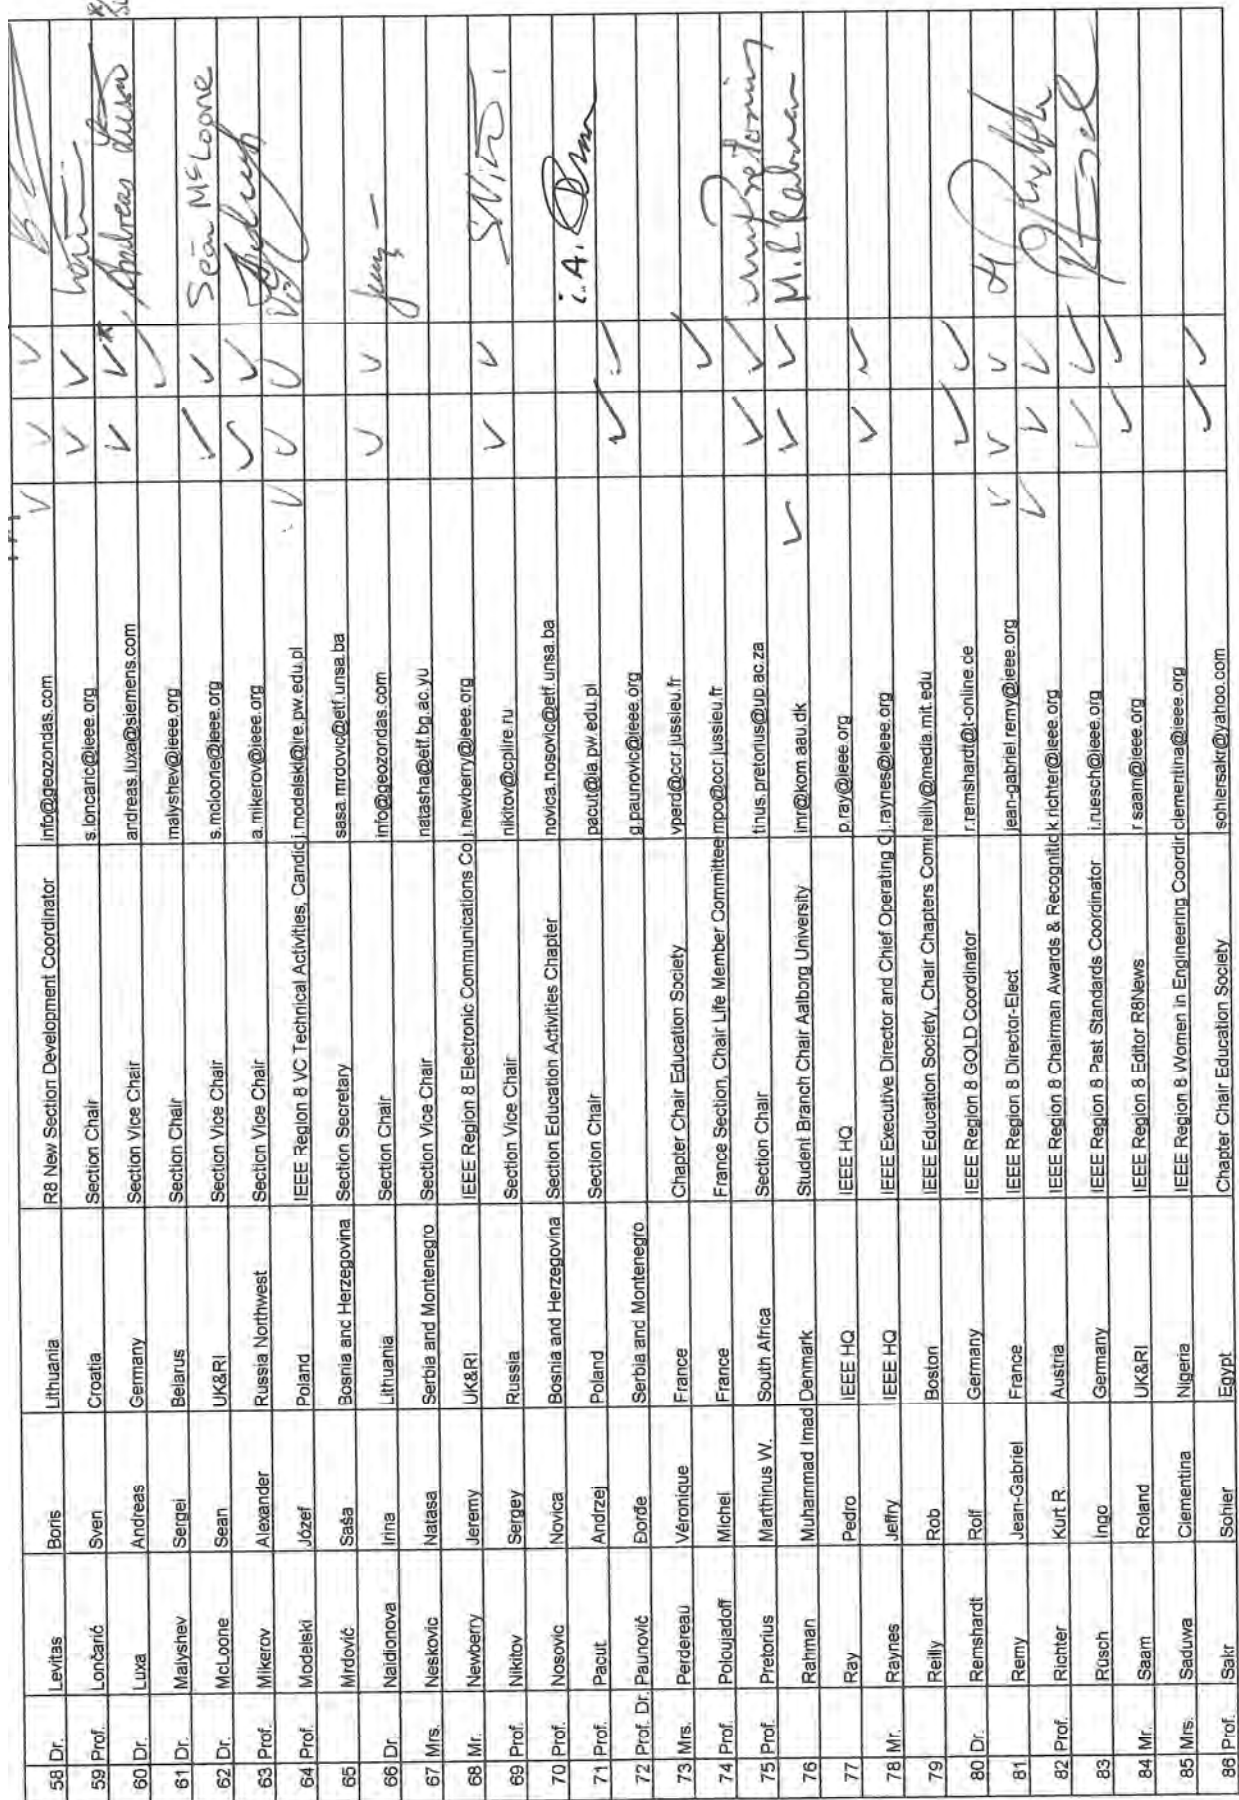 58 Dr. Levitas Boris Lithuania R8 New Section Development Coordinator info@geozondas.com V V V
59 Prof. Lončarić Sven Croatia Section Chair s.loncaric@ieee.org V V
60 Dr. Luxa Andreas Germany Section Vice Chair andreas.luxa@siemens.com V V* Andreas Luxa
61 Dr. Malyshev Sergei Belarus Section Chair malyshev@ieee.org
62 Dr. McLoone Sean UK&RI Section Vice Chair s.mcloone@ieee.org ✓ ✓ Seán McLoone
63 Prof. Mikerov Alexander Russia Northwest Section Vice Chair a.mikerov@ieee.org ✓ ✓
64 Prof. Modelski Józef Poland IEEE Region 8 VC Technical Activities, Candic j.modelski@ire.pw.edu.pl V V V
65 Mrdović Saša Bosnia and Herzegovina Section Secretary sasa.mrdovic@etf.unsa.ba
66 Dr. Naidionova Irina Lithuania Section Chair info@geozondas.com V V
67 Mrs. Neskovic Natasa Serbia and Montenegro Section Vice Chair natasha@etf.bg.ac.yu
68 Mr. Newberry Jeremy UK&RI IEEE Region 8 Electronic Communications Co j.newberry@ieee.org
69 Prof. Nikitov Sergey Russia Section Vice Chair nikitov@cplire.ru V V
70 Prof. Nosovic Novica Bosnia and Herzegovina Section Education Activities Chapter novica.nosovic@etf.unsa.ba
71 Prof. Pacut Andrzej Poland Section Chair pacut@ia.pw.edu.pl ✓ ✓ i.A.
72 Prof. Dr. Paunović Đorđe Serbia and Montenegro g.paunovic@ieee.org
73 Mrs. Perdereau Véronique France Chapter Chair Education Society vperd@ccr.jussieu.fr ✓
74 Prof. Poloujadoff Michel France France Section, Chair Life Member Committee mpo@ccr.jussieu.fr
75 Prof. Pretorius Matthinus W. South Africa Section Chair tinus.pretorius@up.ac.za ✓ ✓
76 Rahman Muhammad Imad Denmark Student Branch Chair Aalborg University imr@kom.aau.dk ✓ ✓ ✓ M.I. Rahman
77 Ray Pedro IEEE HQ IEEE HQ p.ray@ieee.org ✓ ✓
78 Mr. Raynes Jeffry IEEE HQ IEEE Executive Director and Chief Operating O j.raynes@ieee.org
79 Reilly Rob Boston IEEE Education Society, Chair Chapters Comm reilly@media.mit.edu
80 Dr. Remshardt Rolf Germany IEEE Region 8 GOLD Coordinator r.remshardt@t-online.de ✓ ✓
81 Remy Jean-Gabriel France IEEE Region 8 Director-Elect jean-gabriel.remy@ieee.org V V V
82 Prof. Richter Kurt R. Austria IEEE Region 8 Chairman Awards & Recognitic k.richter@ieee.org V V V
83 Rüsch Ingo Germany IEEE Region 8 Past Standards Coordinator i.ruesch@ieee.org V V
84 Mr. Saam Roland UK&RI IEEE Region 8 Editor R8News r.saam@ieee.org ✓ ✓
85 Mrs. Saduwa Clementina Nigeria IEEE Region 8 Women in Engineering Coordir clementina@ieee.org
86 Prof. Sakr Sohier Egypt Chapter Chair Education Society sohiersakr@yahoo.com ✓ ✓